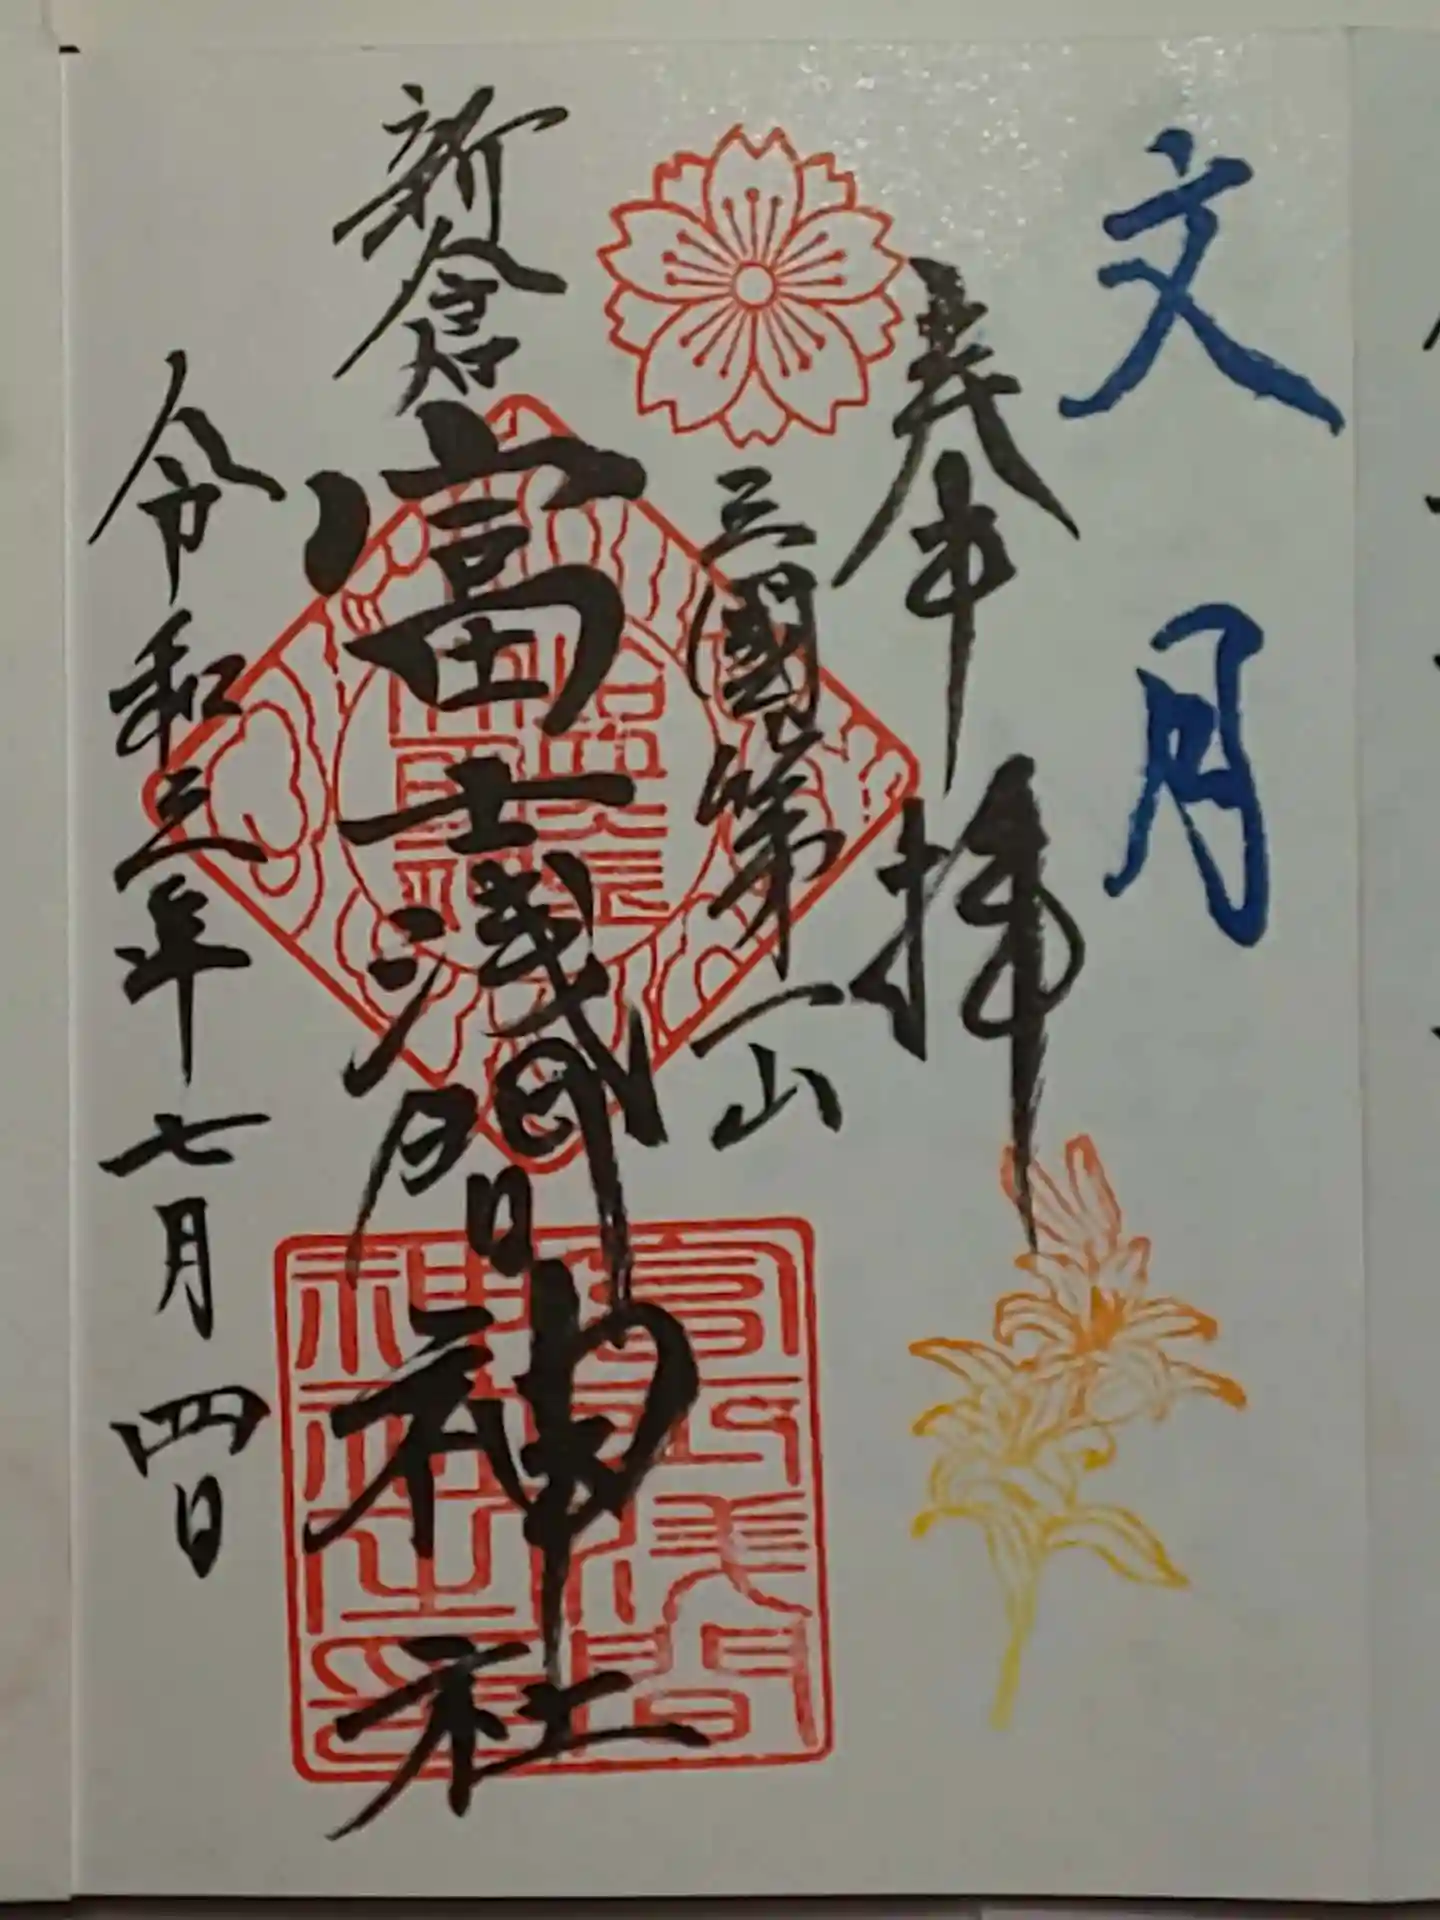 文月
奉拝
三國第一山
新倉
富士浅間神社
令和三年七月四日